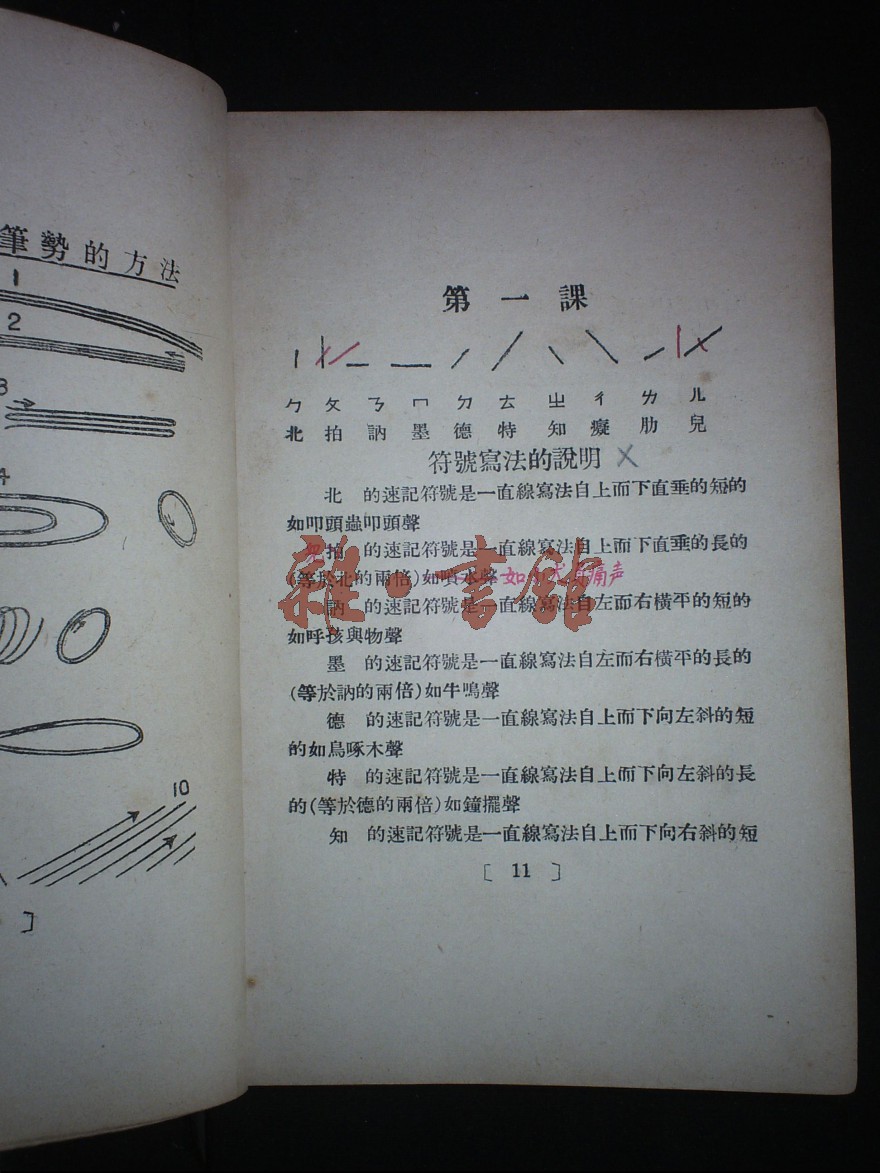 筆勢的方法
1
2
3
4
10
]
第一課
ㄅ ㄆ ㄋ ㄇ ㄉ ㄊ ㄓ ㄔ ㄌ ㄦ
北 拍 訥 墨 德 特 知 癡 肋 兒
符號寫法的說明 X
北 的速記符號是一直線寫法自上而下直垂的短的
如叩頭蟲叩頭聲
拍 的速記符號是一直線寫法自上而下直垂的長的
(等於北的兩倍)如噴水聲
訥 的速記符號是一直線寫法自左而右橫平的短的
如呼孩與物聲
墨 的速記符號是一直線寫法自左而右橫平的長的
(等於訥的兩倍)如牛鳴聲
德 的速記符號是一直線寫法自上而下向左斜的短
的如鳥啄木聲
特 的速記符號是一直線寫法自上而下向左斜的長
的(等於德的兩倍)如鐘擺聲
知 的速記符號是一直線寫法自上而下向右斜的短
[ 11 ]
雜·書館